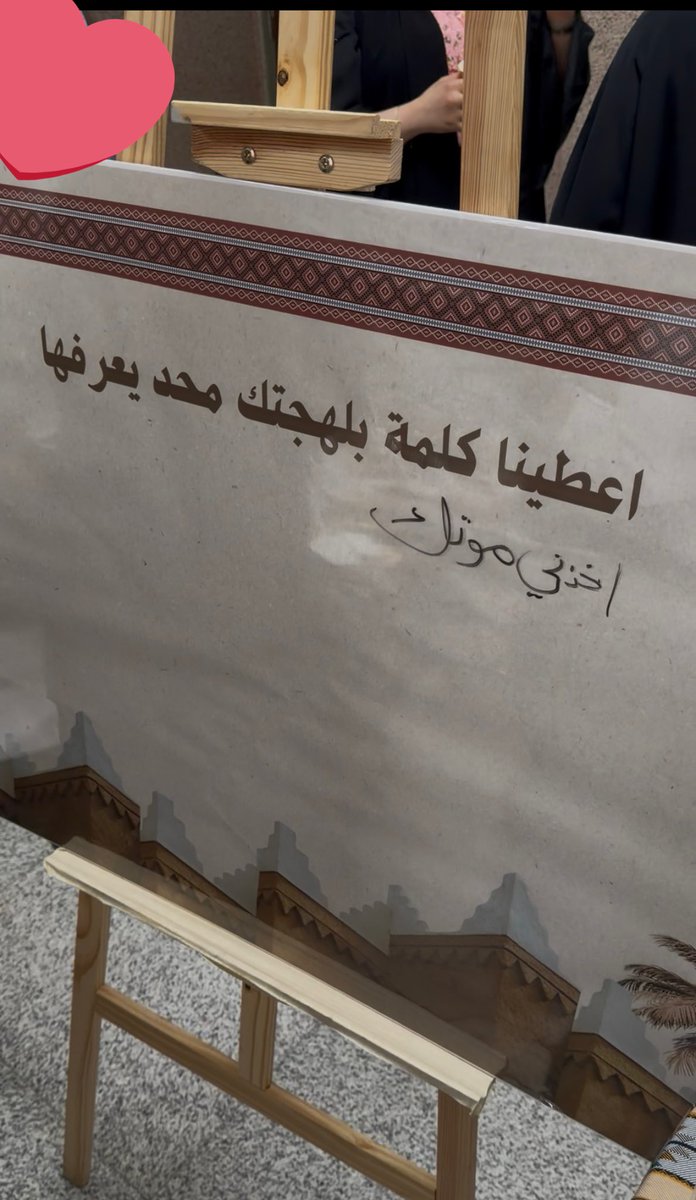 اعطينا كلمة بلهجتك محد يعرفها
اخذني موتك